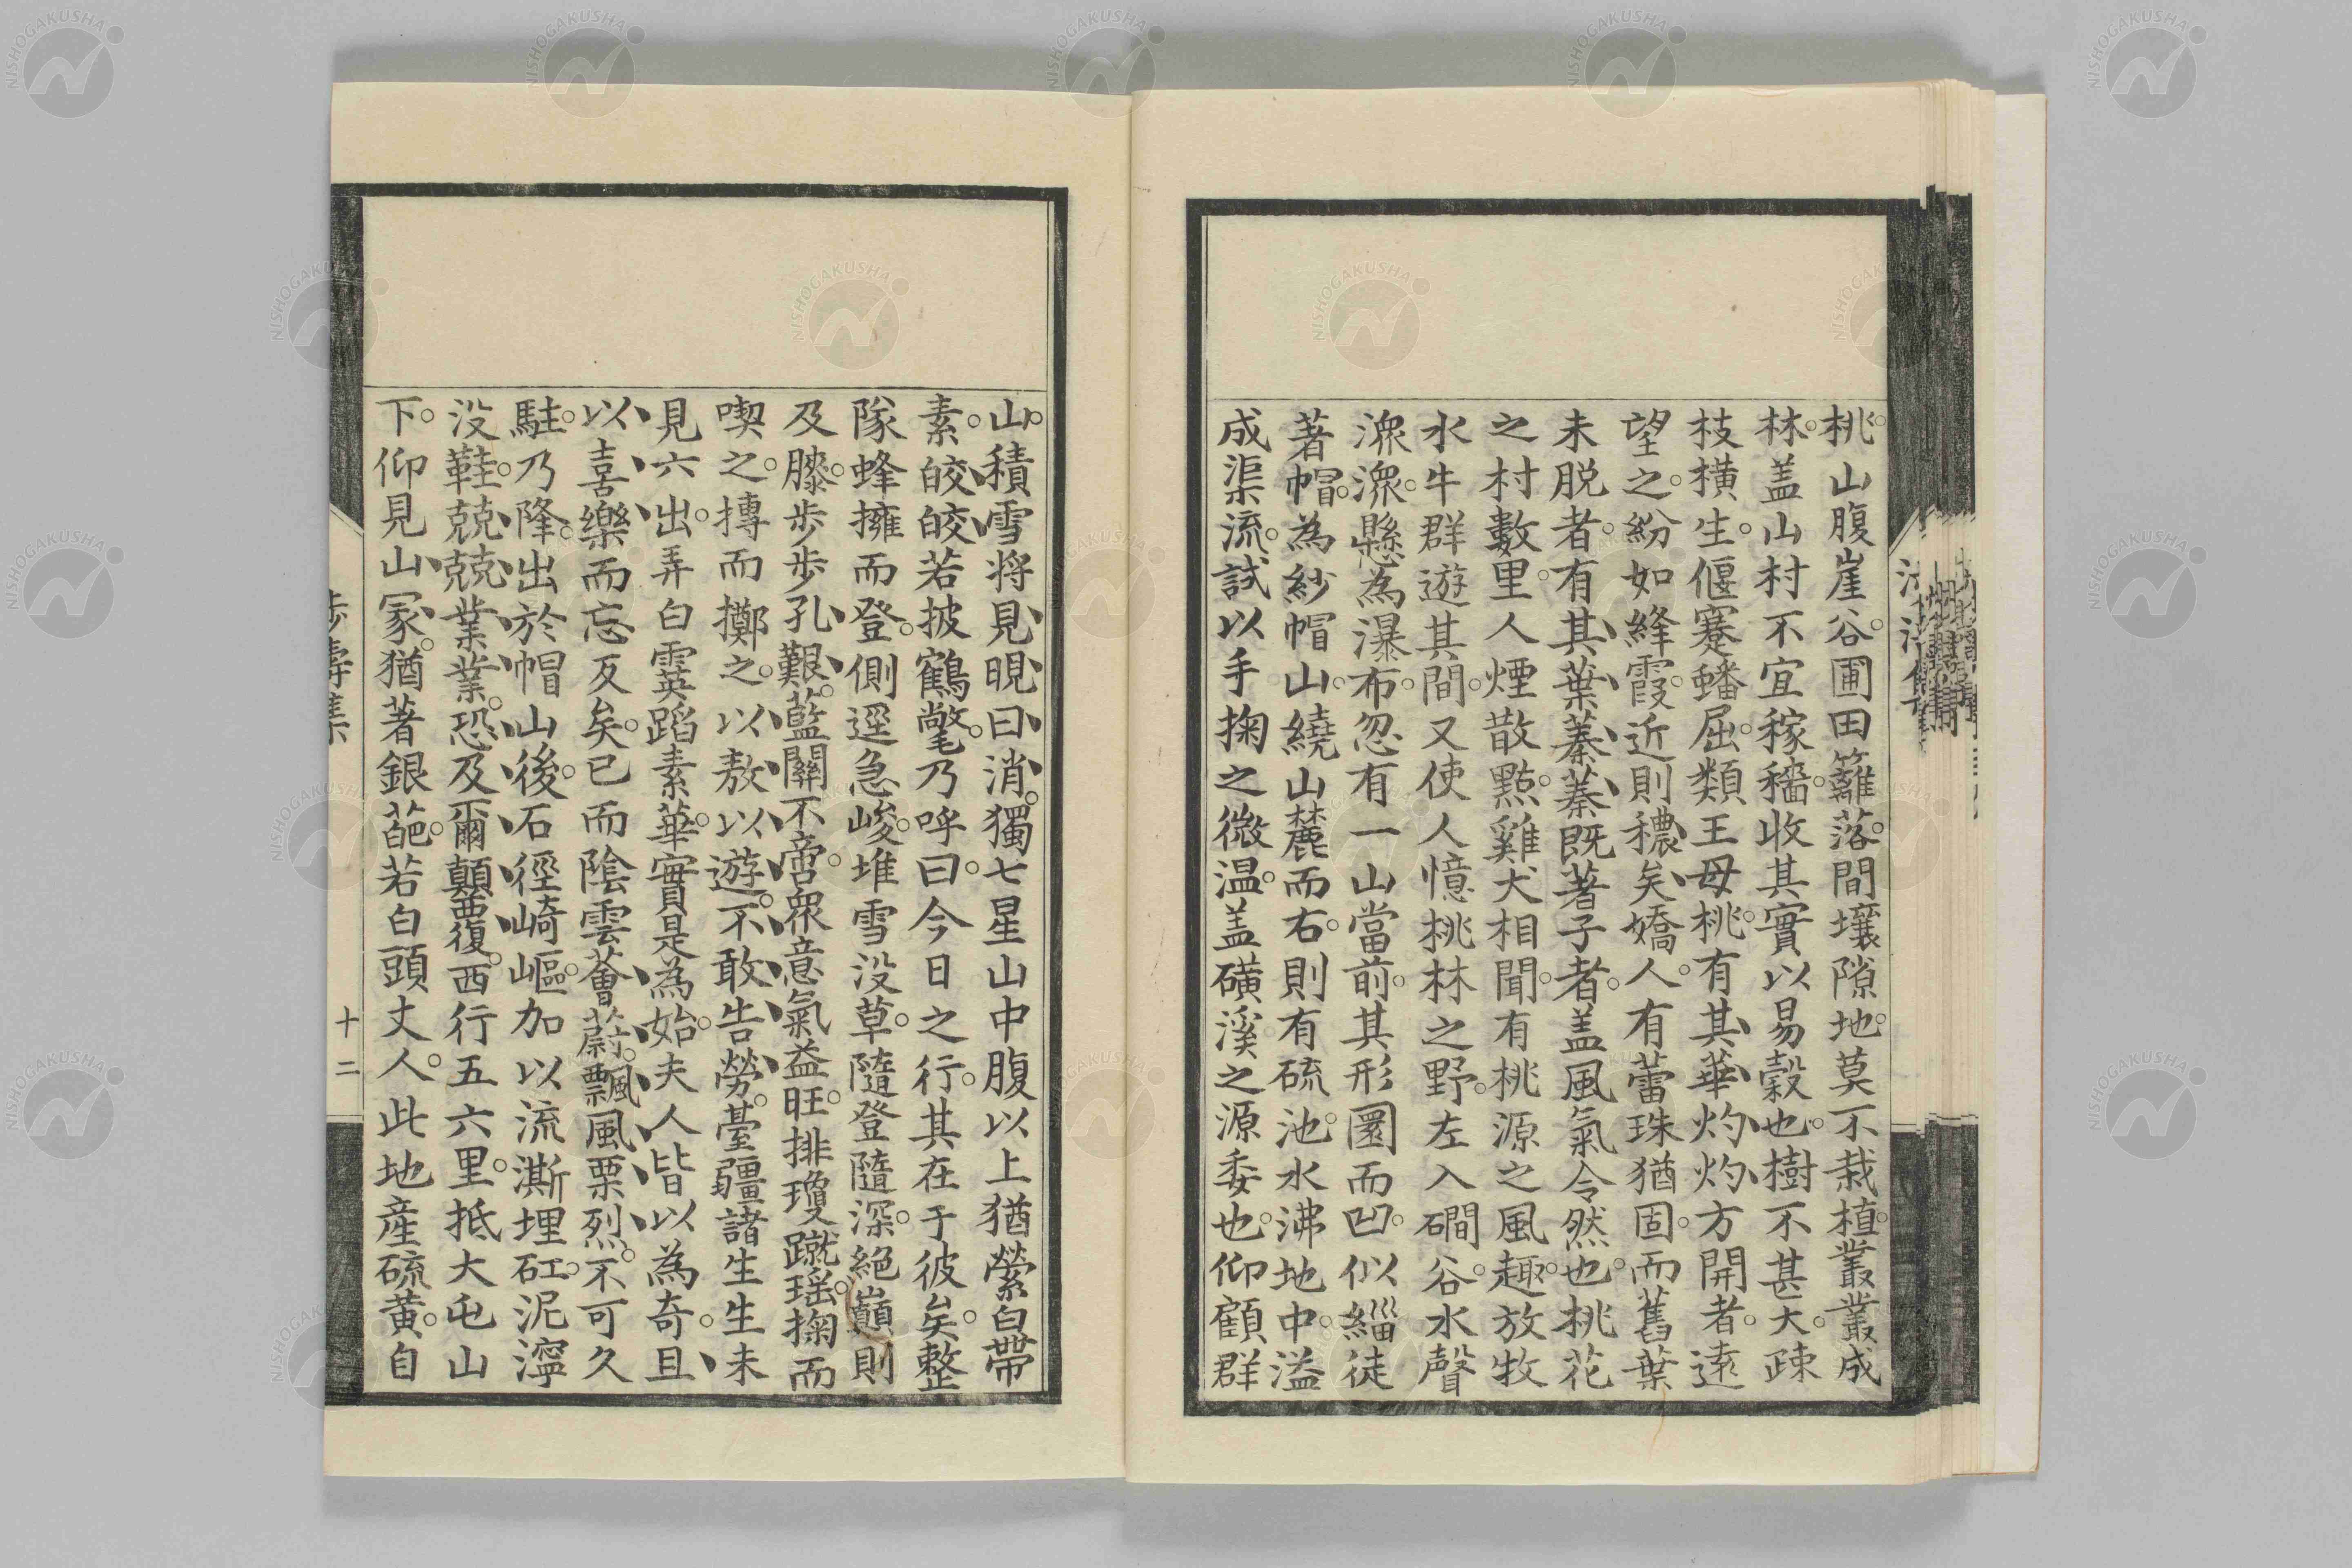 桃。山腹崖谷。圃田籬落。間壤隙地。莫不栽植。叢叢成
林。盖山村不宜稼穡。收其實以易穀也。樹不甚大。疎
枝横生。偃蹇蟠屈。類王母桃。有其華灼灼方開者。遠
望之。紛如絳霞。近則穠矣嬌人。有蕾珠猶固。而舊葉
未脱者。有其葉蓁蓁既著子者。盖風氣令然也。桃花
之村數里。人煙散㸃。雞犬相聞。有桃源之風趣。放牧
水牛群遊其間。又使人憶桃林之野。左入磵谷。水聲
潨潨。懸為瀑布。忽有一山當前。其形圜而凹。似緇徒
著帽。為紗帽山。繞山麓而右。則有硫池。水沸地中。溢
成渠流。試以手掬之微温。盖磺溪之源委也。仰顧群
山。積雪将見晛曰消。獨七星山中腹以上猶縈白帶
素。皎皎若披鶴氅。乃呼曰。今日之行。其在于彼矣。整
隊蜂擁而登。側逕急峻。堆雪没草。隨登隨深。絶巓則
及膝。步步孔艱。藍關不啻。衆意氣益旺。排瓊蹴瑶。掬而
喫之。摶而擲之。以敖以遊。不敢告勞。臺疆諸生生未
見六出。弄白霙蹈素華。實是為始。夫人皆以為奇。且
以喜樂而忘反矣。已而陰雲薈蔚。飄風栗烈。不可久
駐。乃降。出於帽山後。石徑崎嶇。加以流澌埋矼。泥濘
没鞋。兢兢業業。恐及爾顛覆。西行五六里。抵大屯山
下。仰見山冢。猶著銀葩。若白頭丈人。此地産硫黄。自
十二